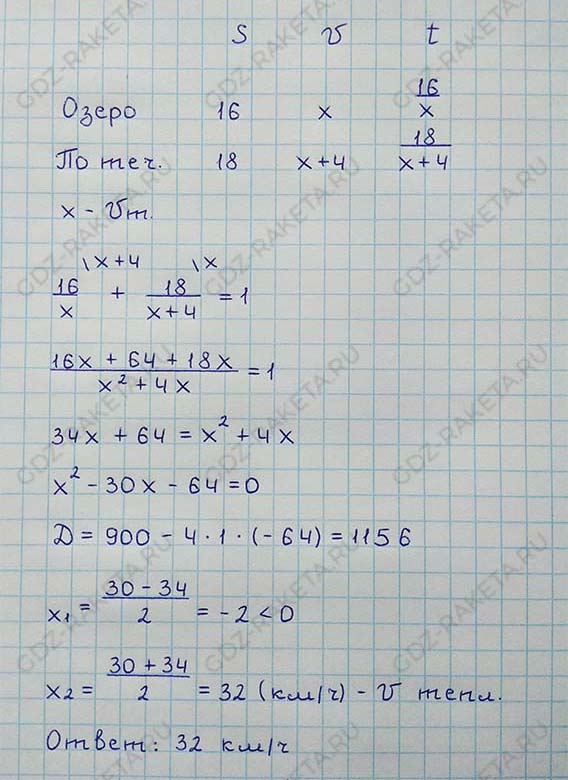 S v t
Озеро 16 x 16/x
По теч. 18 x+4 18/(x+4)
x - Vт.
\x+4 \x
16/x + 18/(x+4) = 1
(16x + 64 + 18x)/(x² + 4x) = 1
34x + 64 = x² + 4x
x² - 30x - 64 = 0
D = 900 - 4 · 1 · (-64) = 1156
x₁ = (30 - 34)/2 = -2 < 0
x₂ = (30 + 34)/2 = 32 (км/ч) - V тепл.
Ответ: 32 км/ч
GDZ-RAKETA.RU